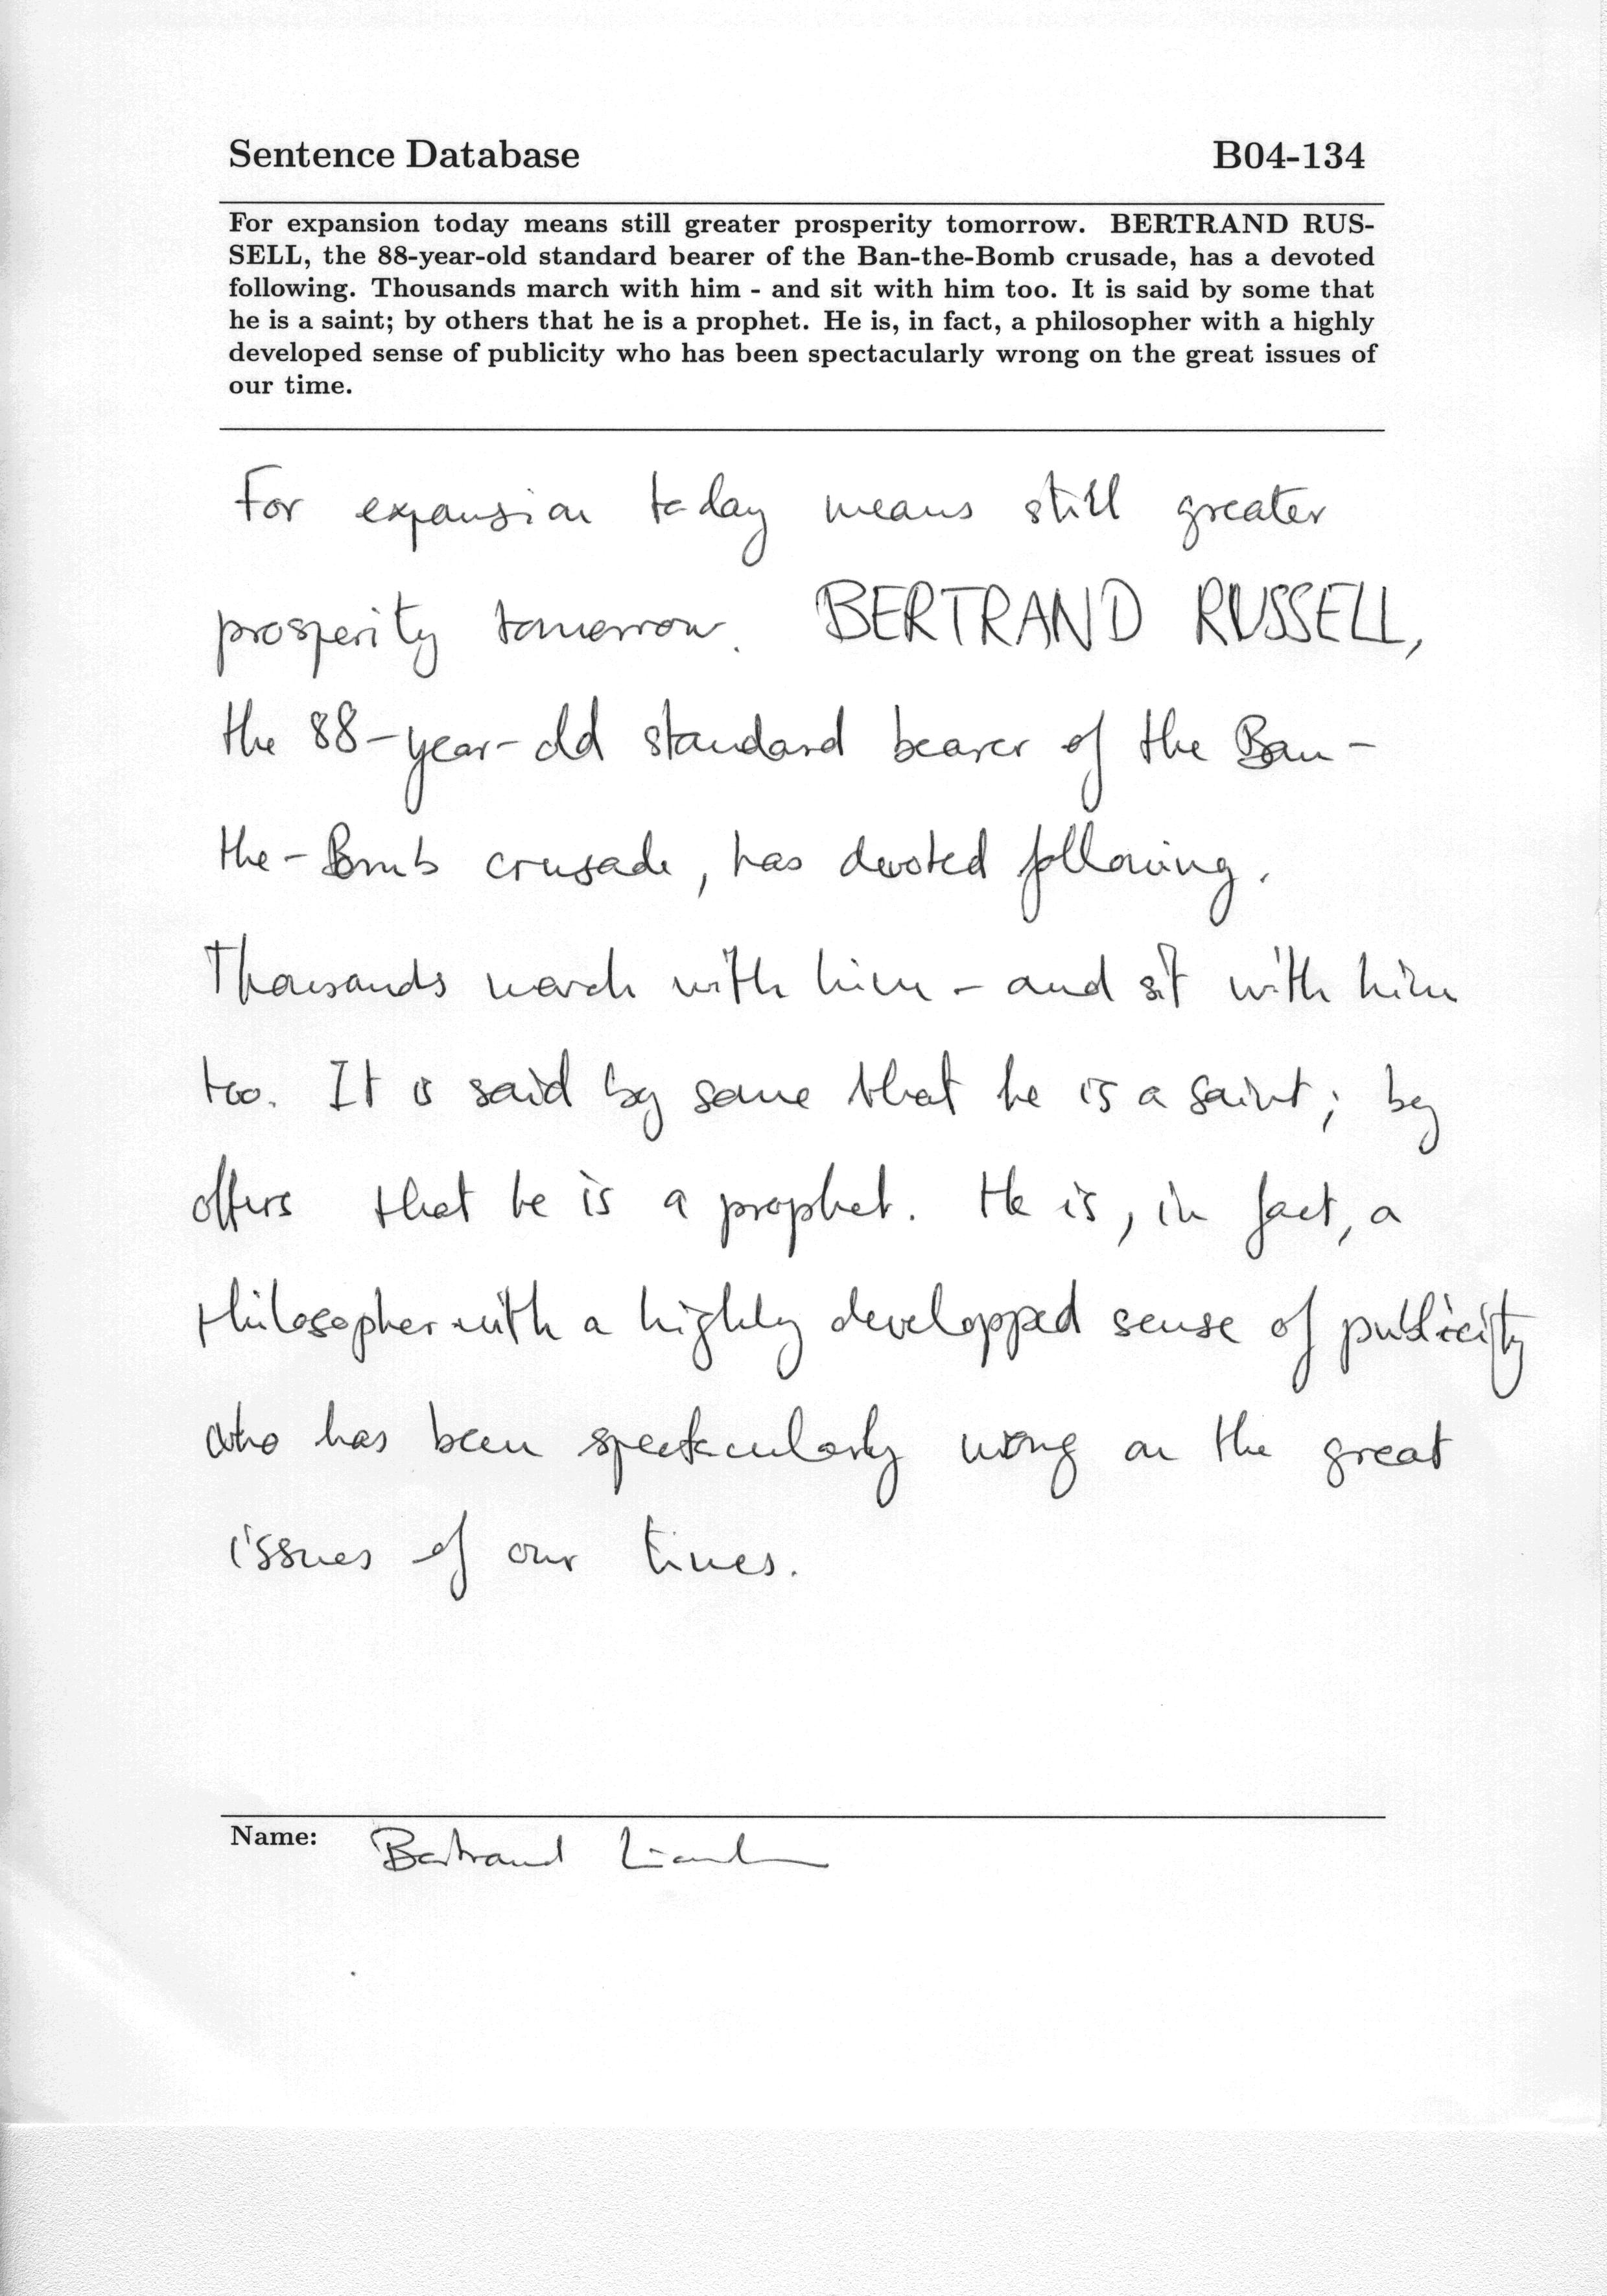 Sentence Database B04-134
For expansion today means still greater prosperity tomorrow. BERTRAND RUS-
SELL, the 88-year-old standard bearer of the Ban-the-Bomb crusade, has a devoted
following. Thousands march with him - and sit with him too. It is said by some that
he is a saint; by others that he is a prophet. He is, in fact, a philosopher with a highly
developed sense of publicity who has been spectacularly wrong on the great issues of
our time.
For expansion today means still greater
prosperity tomorrow. BERTRAND RUSSELL,
the 88-year-old standard bearer of the Ban-
the-Bomb crusade, has devoted following.
Thousands march with him - and sit with him
too. It is said by some that he is a saint; by
others that he is a prophet. He is, in fact, a
philosopher with a highly developped sense of publicity
who has been spectacularly wrong on the great
issues of our times.
Name: Bertrand